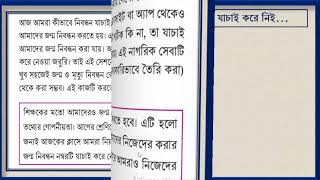 আজ আমরা কীভাবে নিবন্ধন যাচাই
আমাদের জন্ম নিবন্ধন করতে হয়।
আমাদের জন্ম নিবন্ধন করা যায়।
করে নেওয়া জরুরি। তাই এই
খুব সহজেই জন্ম ও মৃত্যু নিবন্ধন
থেকে করা সম্ভব। এই কাজটি করতে
শিক্ষকের মতো আমাদেরও জন্ম
তথ্যের গোপনীয়তা। আগের শ্রেণিতে
জন্যই আজকের ক্লাসে আমরা
জন্ম নিবন্ধন নম্বরটি যাচাই করে
বা অ্যাপ থেকেও
ঠিক কি না, তা যাচাই
এই নাগরিক সেবাটি
তৈরি করা)
হবে। এটি হলো
নিজেদের করার
আমরাও নিজেদের
যাচাই করে নিই...